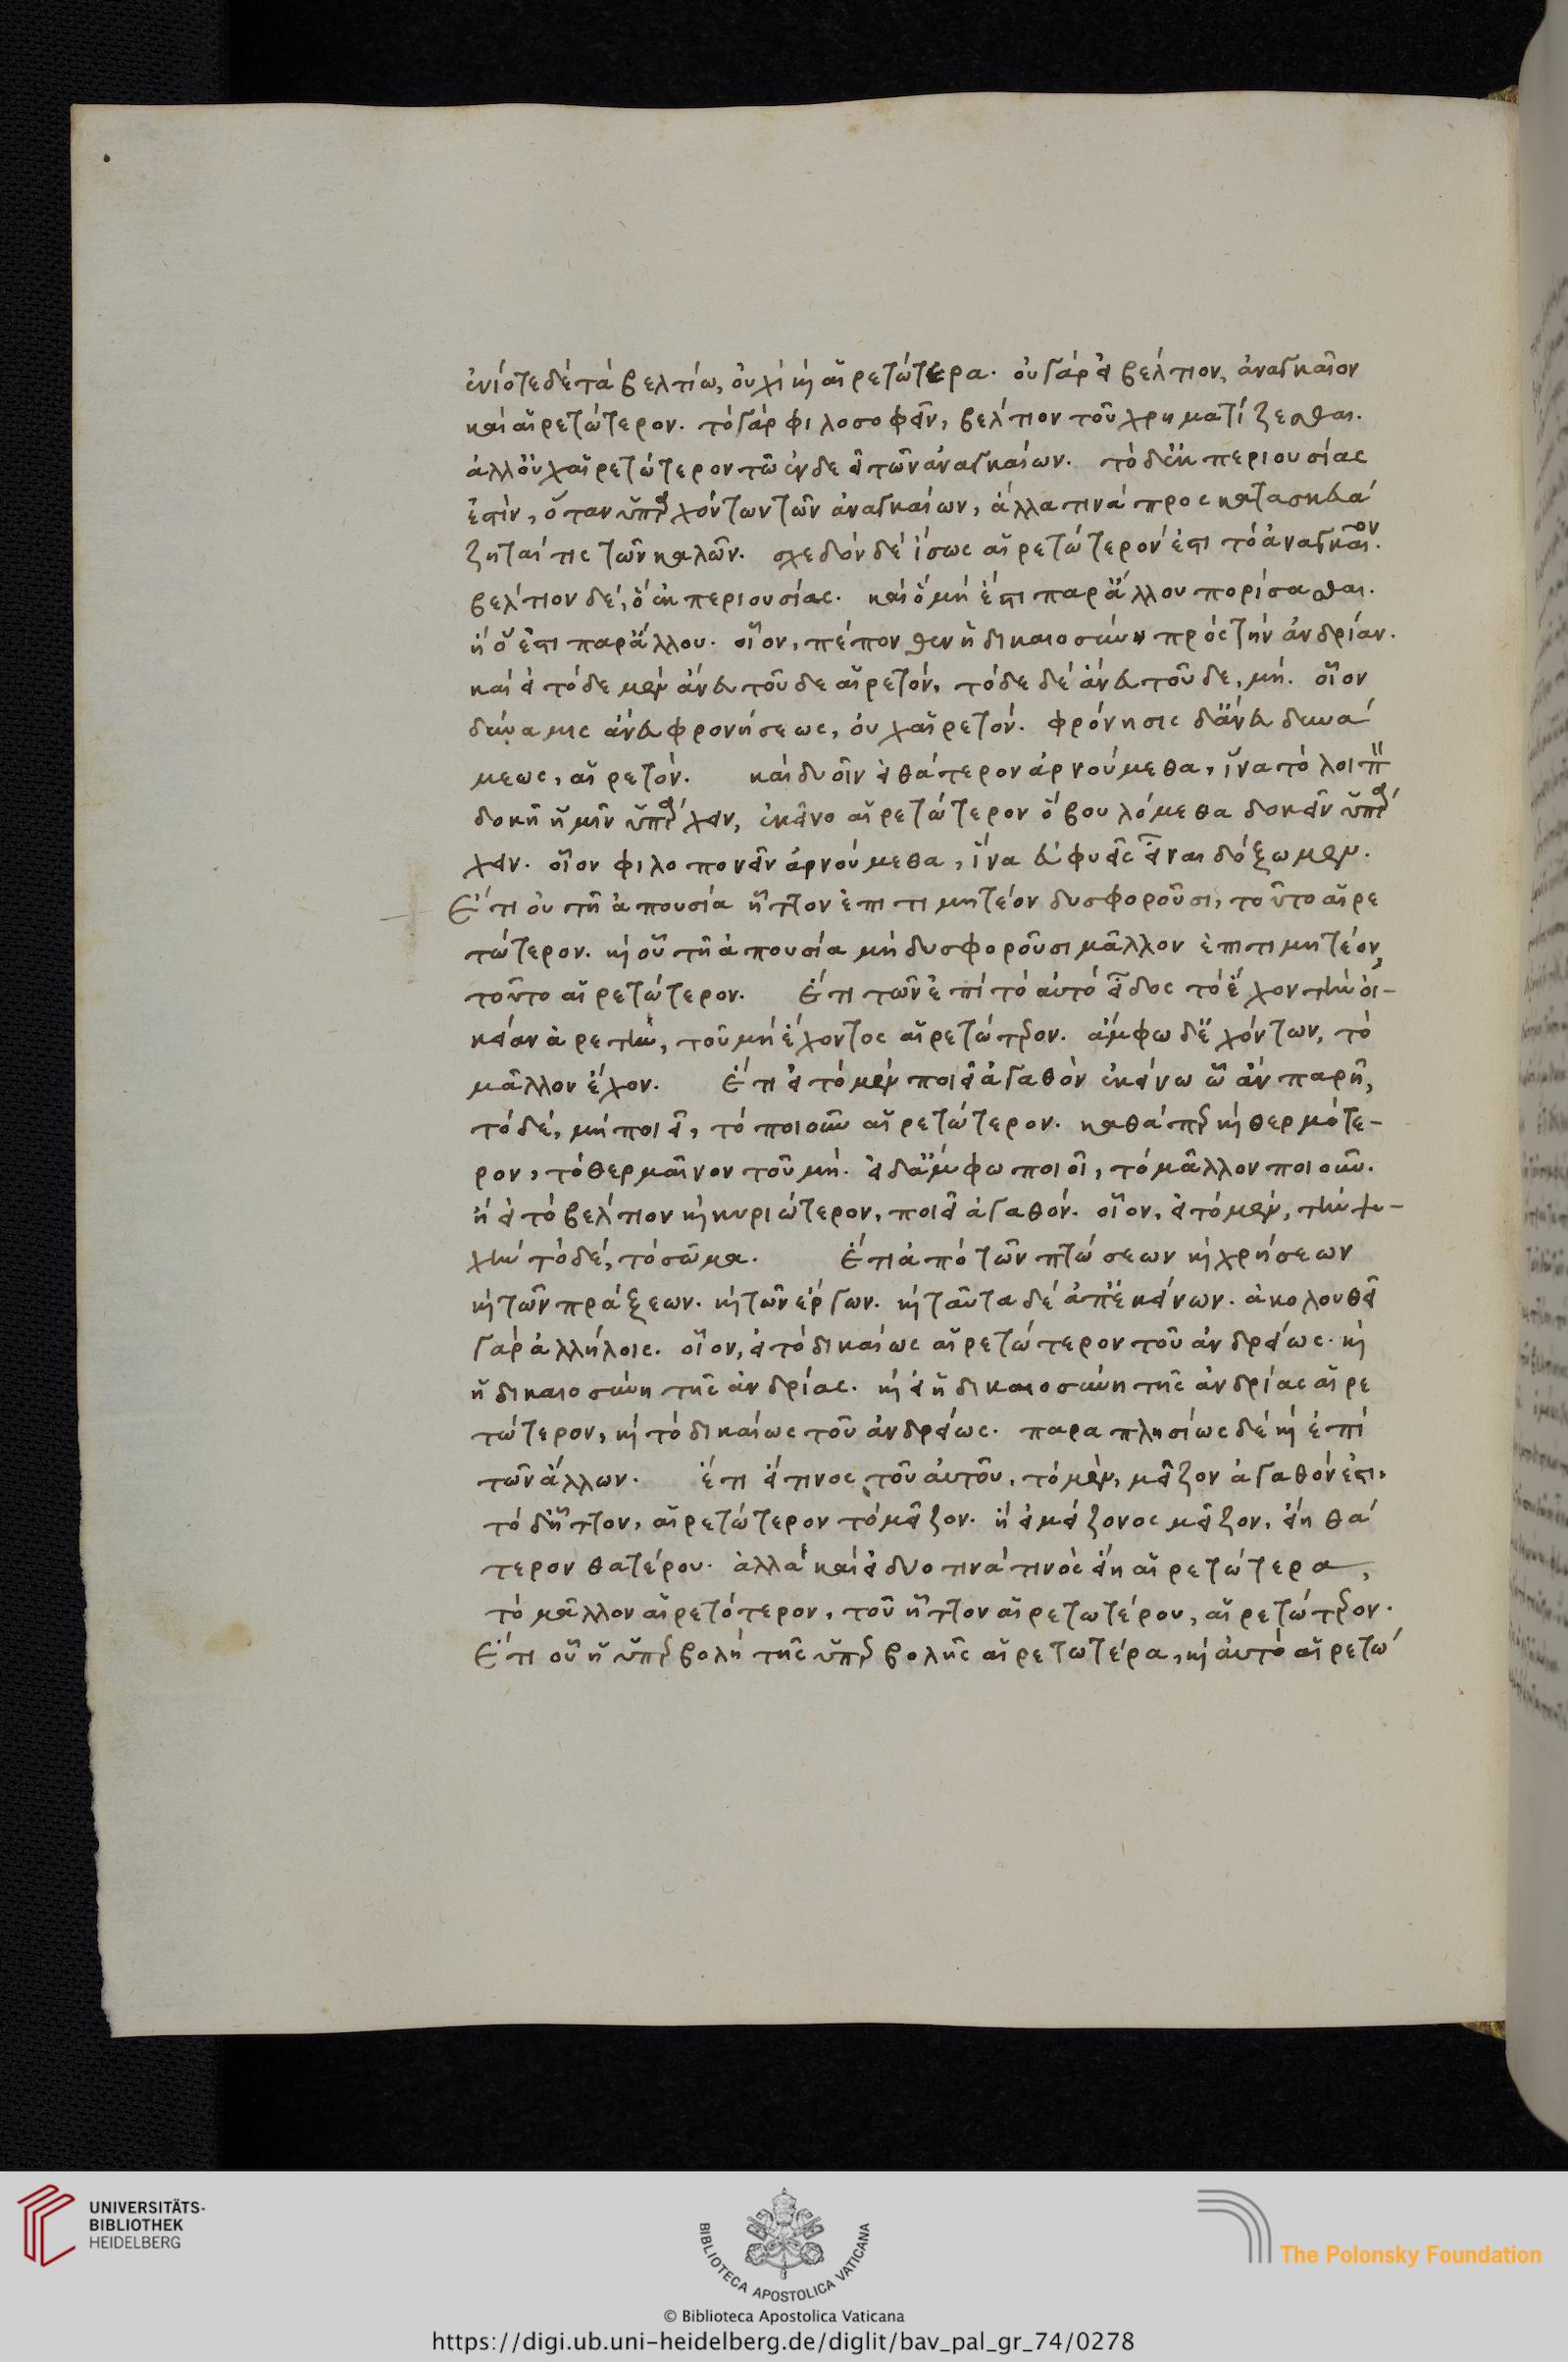 ἐνίοτε δὲ τὰ βελτίω, οὐχὶ καὶ αἱρετώτερα. οὐ γὰρ εἰ βέλτιον, ἀναγκαῖον
καὶ αἱρετώτερον. τὸ γὰρ φιλοσοφεῖν, βέλτιον τοῦ χρηματίζεσθαι.
ἀλλ' οὐχ αἱρετώτερον τῶ ἐνδεεῖ τῶν ἀναγκαίων. τὸ δ' ἐκ περιουσίας
ἐστὶν, ὅταν ὑπαρχόντων τῶν ἀναγκαίων, ἄλλα τινὰ προσκατασκευά
ζηταί τις τῶν καλῶν. σχεδὸν δὲ ἴσως αἱρετώτερόν ἐστι τὸ ἀναγκαῖον.
βέλτιον δὲ, ὃ ἐκ περιουσίας. καὶ ὃ μή ἐστι παρ' ἄλλου πορίσασθαι.
ἢ ὅ ἐστι παρ' ἄλλου. οἷον, πέπονθεν ἡ δικαιοσύνη πρὸς τὴν ἀνδρίαν.
καὶ εἰ τόδε μὲν ἄνευ τοῦδε αἱρετὸν, τόδε δὲ ἄνευ τοῦδε, μή. οἷον
δύναμις ἄνευ φρονήσεως, οὐχ αἱρετόν. φρόνησις δ' ἄνευ δυνά
μεως, αἱρετόν. καὶ δυοῖν εἰ θάτερον ἀρνούμεθα, ἵνα τὸ λοιπὸν
δοκῆ ἡμῖν ὑπάρχειν, ἐκεῖνο αἱρετώτερον ὃ βουλόμεθα δοκεῖν ὑπάρ
χειν. οἷον φιλοπονεῖν ἀρνούμεθα, ἵνα εὐφυεῖς εἶναι δόξωμεν.
Ἔτι οὗ τῆ ἀπουσία ἧττον ἐπιτιμητέον δυσφοροῦσι, τοῦτο αἱρε
τώτερον. καὶ οὗ τῆ ἀπουσία μὴ δυσφοροῦσι μᾶλλον ἐπιτιμητέον,
τοῦτο αἱρετώτερον. Ἔτι τῶν ἐπὶ τὸ αὐτὸ εἶδος τὸ ἔχον τὴν οἰ-
κείαν ἀρετὴν, τοῦ μὴ ἔχοντος αἱρετώτερον. ἄμφω δ' ἐχόντων, τὸ
μᾶλλον ἔχον. Ἔτι εἰ τὸ μὲν ποιεῖ ἀγαθὸν ἐκείνω ὧ ἂν παρῆ,
τὸ δὲ, μὴ ποιεῖ, τὸ ποιοῦν αἱρετώτερον. καθάπερ καὶ θερμότε-
ρον, τὸ θερμαῖνον τοῦ μή. εἰ δ' ἄμφω ποιοῖ, τὸ μᾶλλον ποιοῦν.
ἢ εἰ τὸ βέλτιον καὶ κυριώτερον, ποιεῖ ἀγαθόν. οἷον, εἰ τὸ μὲν, τὴν ψυ-
χὴν τὸ δὲ, τὸ σῶμα. Ἔτι ἀπὸ τῶν πτώσεων καὶ χρήσεων
καὶ τῶν πράξεων. καὶ τῶν ἔργων. καὶ ταῦτα δὲ ἀπ' ἐκείνων. ἀκολουθεῖ
γὰρ ἀλλήλοις. οἷον, εἰ τὸ δικαίως αἱρετώτερον τοῦ ἀνδρείως. καὶ
ἡ δικαιοσύνη τῆς ἀνδρίας. καὶ εἰ ἡ δικαιοσύνη τῆς ἀνδρίας αἱρε
τώτερον, καὶ τὸ δικαίως τοῦ ἀνδρείως. παραπλησίως δὲ καὶ ἐπὶ
τῶν ἄλλων. ἔτι εἴ τινος τοῦ αὐτοῦ, τὸ μὲν, μεῖζον ἀγαθόν ἐστι,
τὸ δ' ἧττον, αἱρετώτερον τὸ μεῖζον. ἢ εἰ μείζονος μεῖζον, εἴη θά
τερον θατέρου. ἀλλὰ καὶ εἰ δύο τινὰ τινὸς εἴη αἱρετώτερα,
τὸ μᾶλλον αἱρετότερον, τοῦ ἧττον αἱρετωτέρου, αἱρετώτερον.
Ἔτι οὗ ἡ ὑπερβολὴ τῆς ὑπερβολῆς αἱρετωτέρα, καὶ αὐτὸ αἱρετώ
UNIVERSITÄTS-
BIBLIOTHEK
HEIDELBERG
BIBLIOTECA APOSTOLICA VATICANA
The Polonsky Foundation
© Biblioteca Apostolica Vaticana
https://digi.ub.uni-heidelberg.de/diglit/bav_pal_gr_74/0278